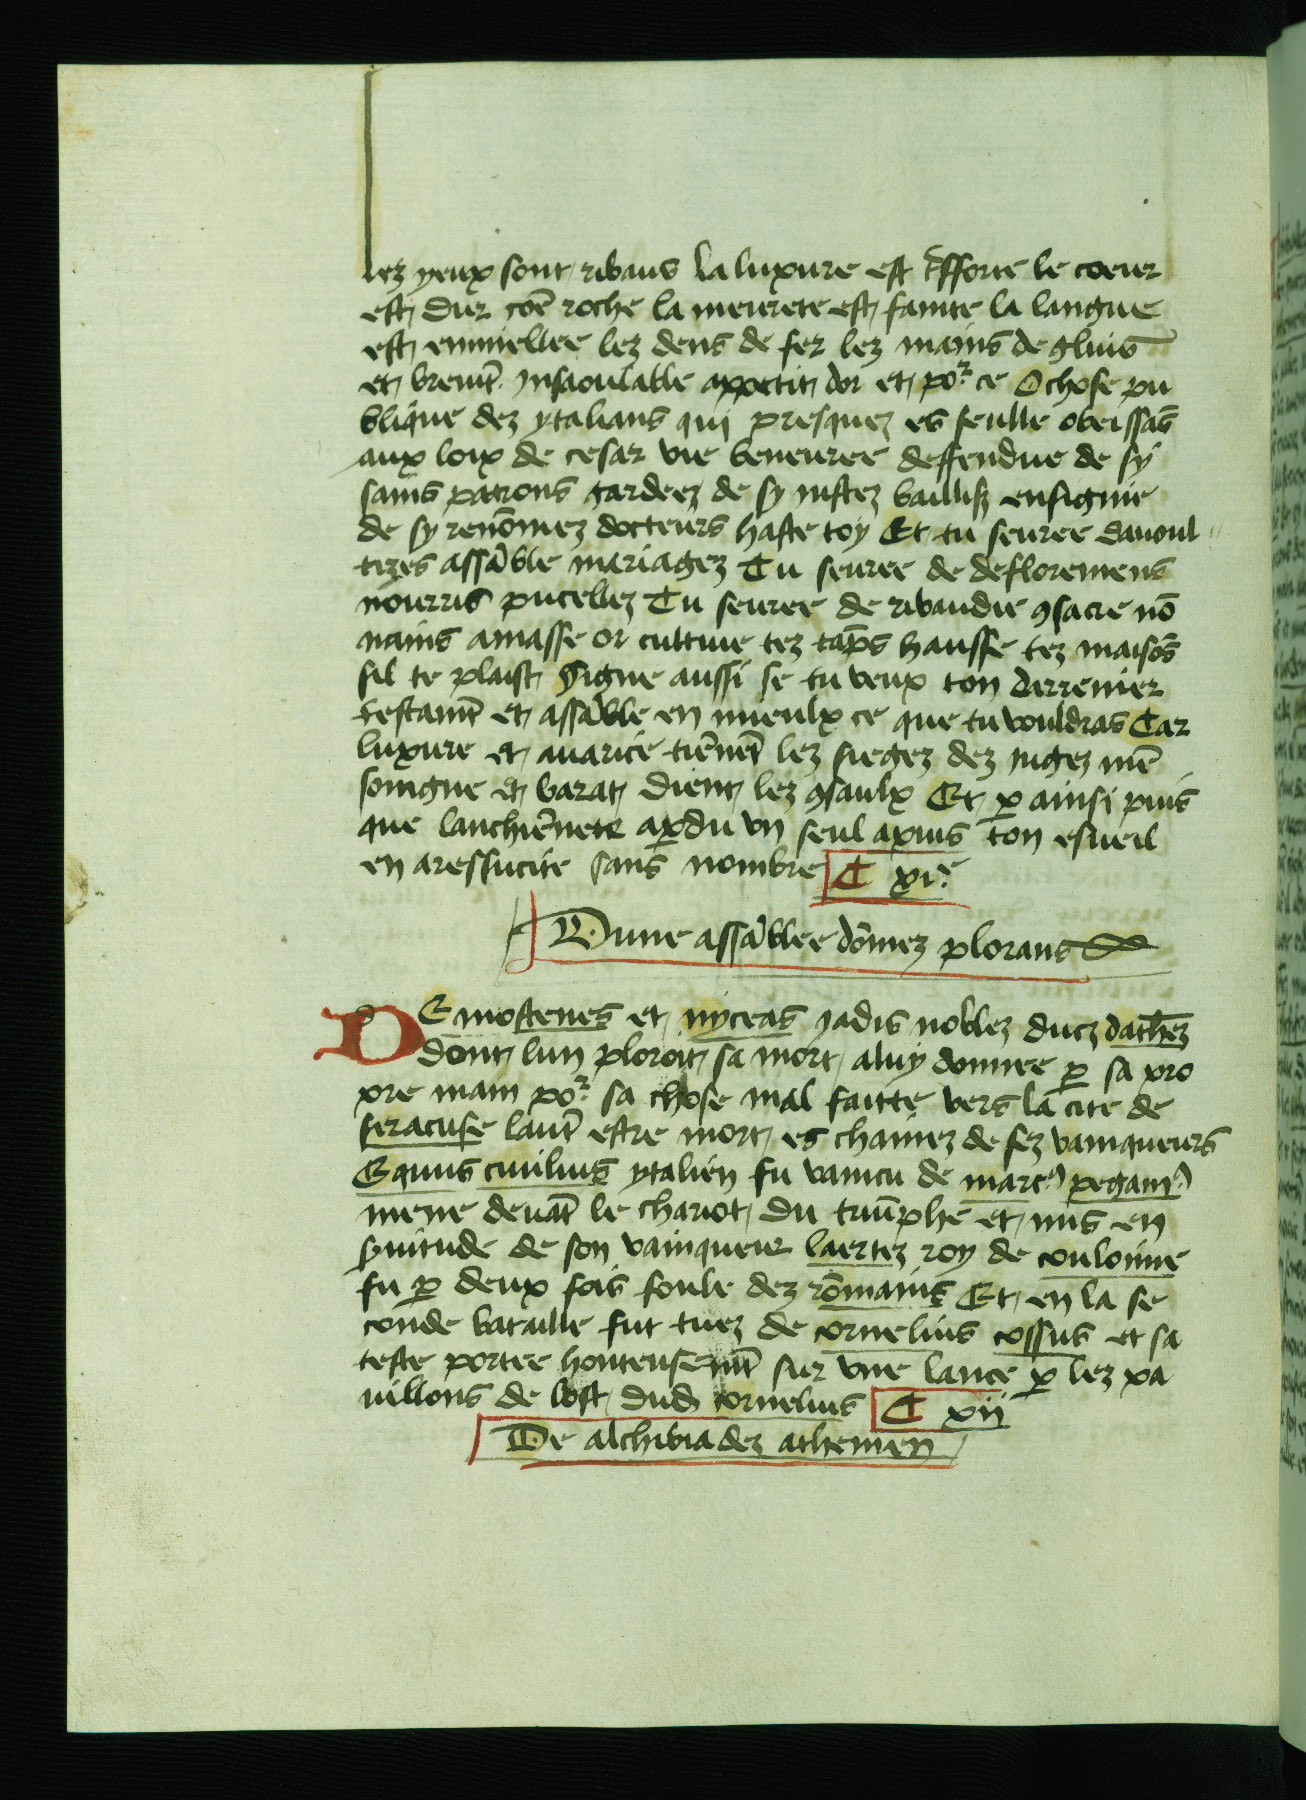 lez yeux sont ribaus la luxure est efforte le coeur
est dur cōe roche la meurete est fainte la langue
est enmiellee lez dens de fer lez mains de gluis
et briemt̄ insaoulable appetit dor et por ce O chose pu
blique dez ytalians qui presquez es seulle obeissās
aux loix de cesar vie beneuree deffendue de sy
sains patrons gardeez de sy iustez baillifz ensignie
de sy renōmez docteurs haste toy Et tu seuree dauoul
tizes assāble mariagez Tu seuree de defloremens
nourris pucellez Tu seuree de ribaudie ꝯsacre nō
nains amasse or cultiue tez cāps hausse tez maisōs
sil te plaist Signe aussi se tu veux ton darrenier
testamt̄ et assāble en mieulx ce que tu vouldras Car
luxure et auarice tiēnēt lez siegez dez iugez mē
songne et barat dient lez ꝯsaulx Et ꝑ ainsi puis
que lanchiēnete aꝑdu vn seul apius ton esueil
en a ressucite sans nombre C xie
Dune assāblee dōmez plorans
DEmostenes et nyceas iadis noblez ducz dathēz
dont lun ploroit sa mort a luy donnee ꝑ sa pro
pre main por sa chose mal faitte vers la cite de
siracuse lautr̄ estre mort es chainez de sez vainqueurs
Equus cuilius ytalien fu vaincu de marc pegani
mene deuāt le chariot du triūphe et mis en
suitude de son vainqueur laertez roy de coulonne
fu ꝑ deux fois foule dez rōmains Et en la se
conde bataille fut tuez de cornelius cossus et sa
teste portee honteusemt̄ sur vne lance ꝑ lez pa
uillons de lost dud cornelius C xii
De alchibiadez athenien